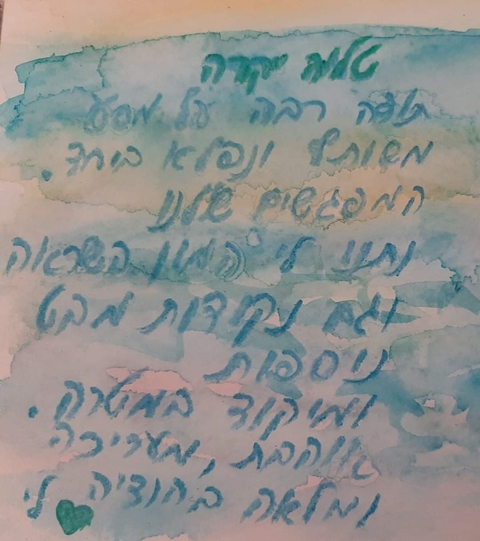 טליה יקרה
תודה רבה על מסע
משותף ונפלא ביחד.
המפגשים שלנו
נתנו לי המון השראה
וגם נקודות מבט
נוספות
ומיקוד במטרה.
אוהבת, מעריכה
ומלאה בהודיה לי